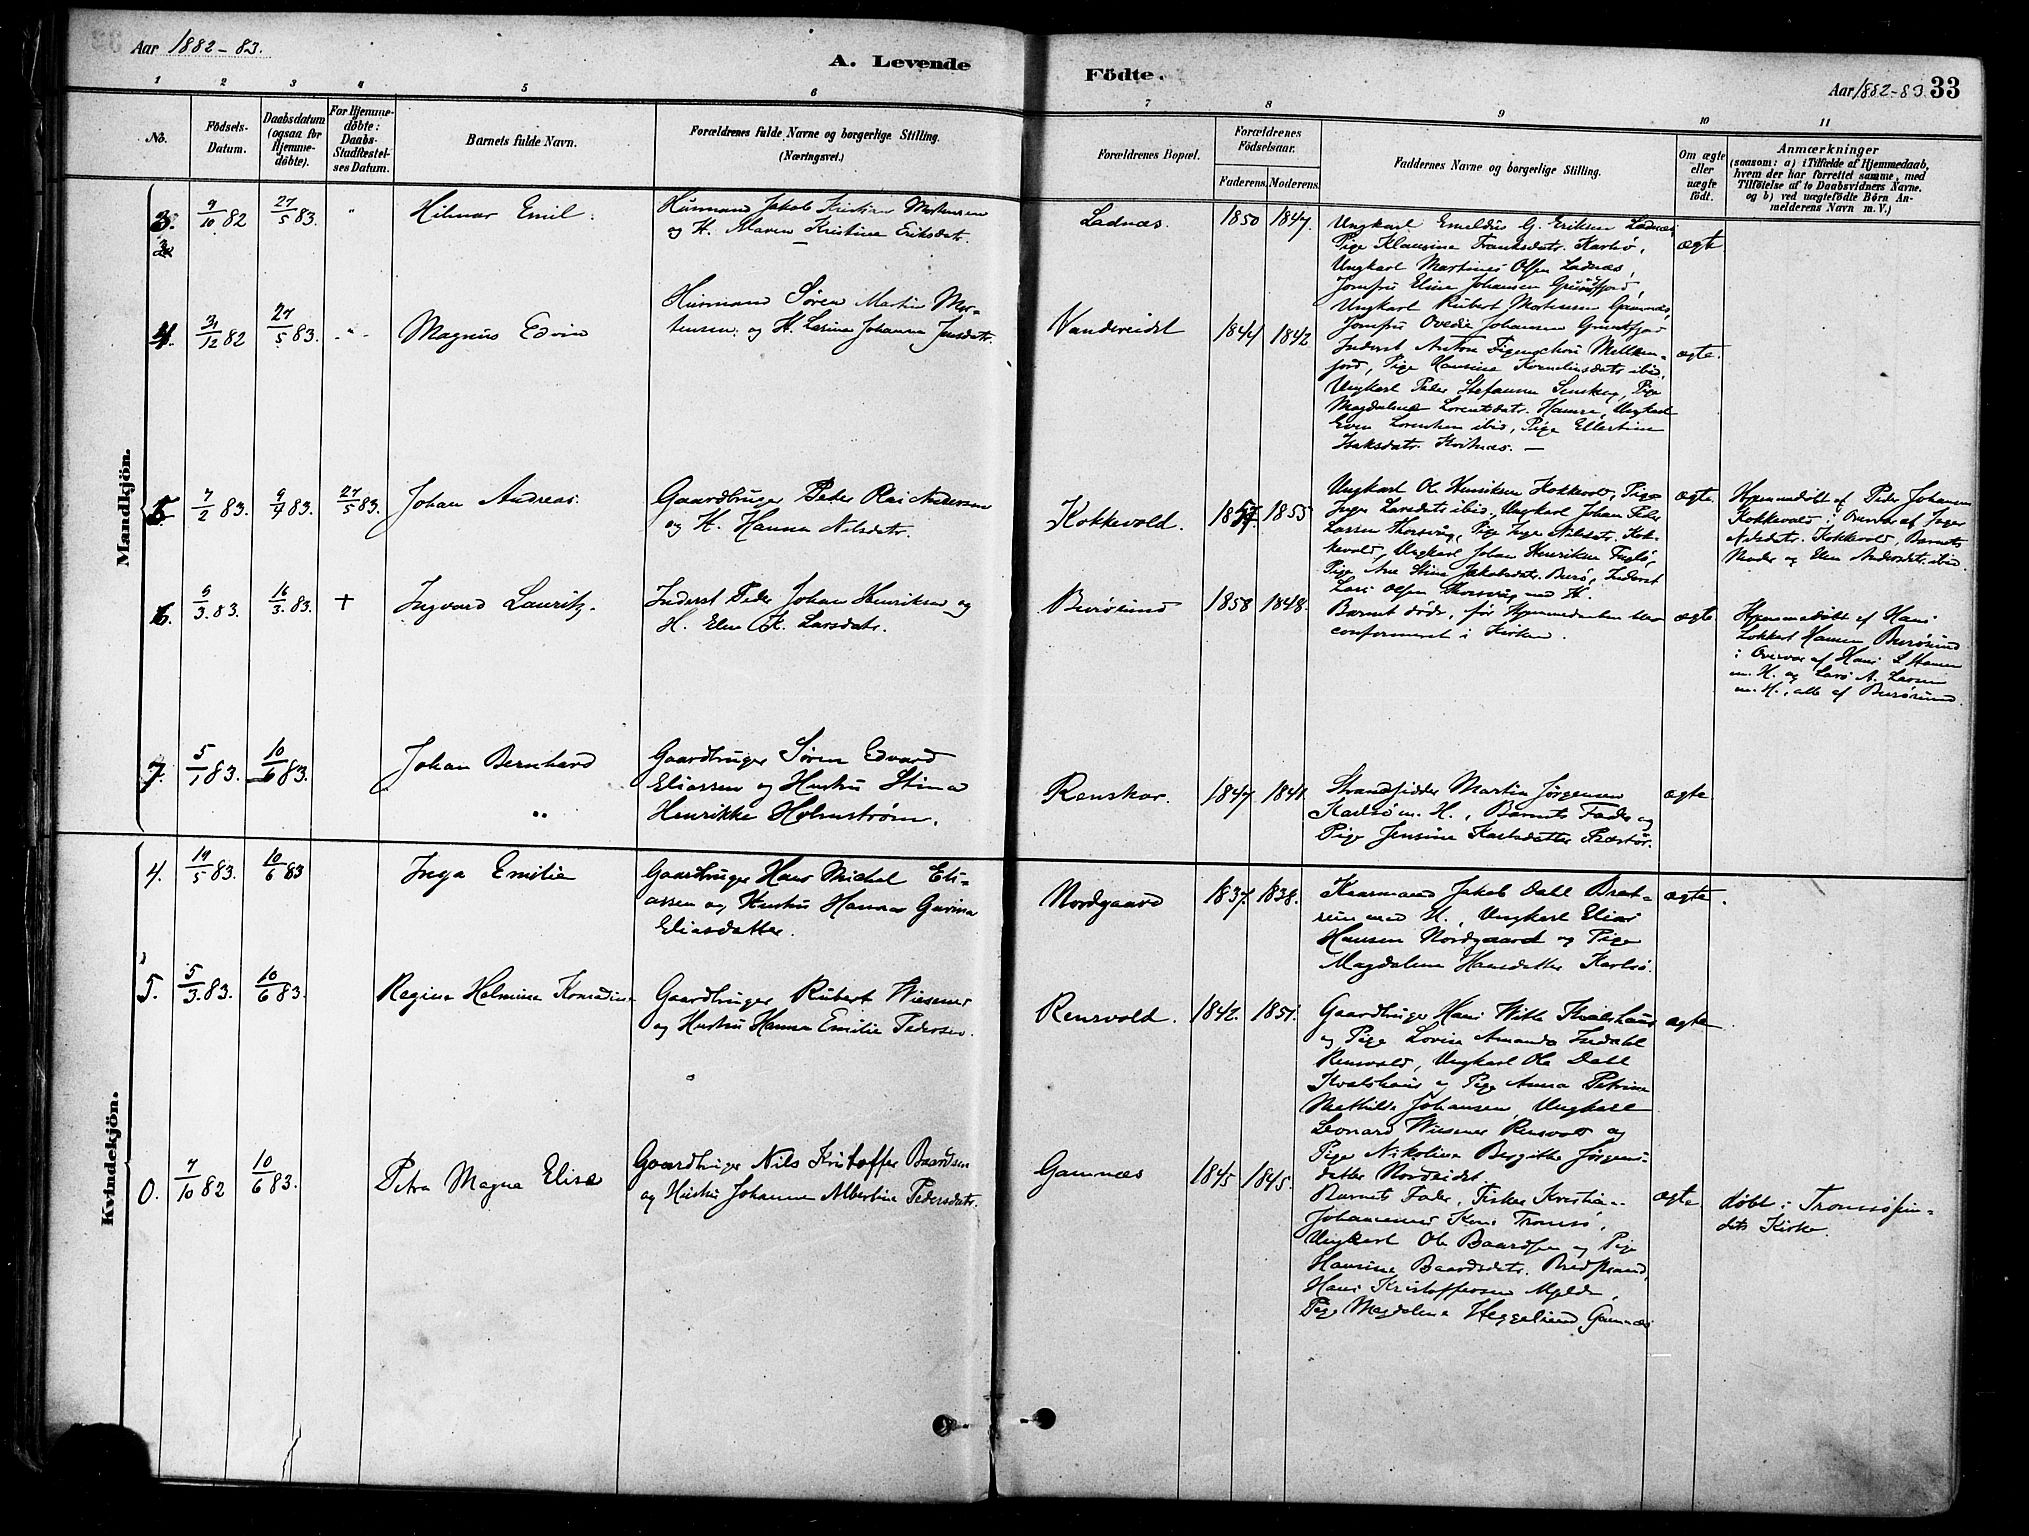 Aar 1882-83.
A. Levende
Födte.
Aar 1882-83. 33
1 2 3 4 5 6 7 8 9 10 11
No.
Födsels-
Datum.
Daabsdatum
(ogsaa for
Hjemme-
döbte).
For Hjemme-
döbte:
Daabs-
Stadfæstel-
ses Datum.
Barnets fulde Navn.
Forældrenes fulde Navne og borgerlige Stilling.
(Næringsvei.)
Forældrenes Bopæl.
Forældrenes
Födselsaar.
Faderens. Moderens.
Faddernes Navne og borgerlige Stilling.
Om ægte
eller
uægte
födt.
Anmærkninger
(saasom: a) i Tilfælde af Hjemmedaab,
hvem der har forrettet samme, med
Tilföielse af to Daabsvidners Navne.
og b) ved uægtefödte Börn An-
melderens Navn m. V.)
Mandkjön.
3. 9/10 82 27/5 83. " Hilmar Emil.
Husmand Jakob Kristian Mortensen
og H. Maren Kristine Eriksdatr.
Ladnæs. 1850 1847.
Ungkarl Emeldus G. Eriksen Ladnæs
Pige Klausine Franksdatr. Karlsø,
Ungkarl Martines Olsen Ladnæs,
Jomfru Eline Johansen Grundfjord,
ægte
4. 31/12 82 27/5 83. " Magnus Edvin
Husmand Søren Martin Mor-
tensen og H. Lasina Johanna Jensdatr.
Vandereidet 1844 1842
Ungkarl Rubert Mortensen Gamnæs
Jomfru Ovedie Johansen Grundfjor
Inderst Anton Figenschou Mellem-
fjord, Pige Hansine Kornelinsdatr ibid,
Ungkarl Peder Stefansen, Pige
Magdalena Lorentsdatr. Hamre, Ungkarl
Even Lorentsen ibid, Pige Ellertine
Isaksdatr. Kvitnæs.
ægte.
5. 7/2 83. 9/4 83. 27/5 83. Johan Andreas.
Gaardbruger Peder Andersen
og H. Hanna Nilsdatr.
Kokkevold. 1855
Ungkarl Ole Henriksen Kokkevold, Pige
Inger Larsdatr ibid, Ungkarl Johan Peder
Larsen Thorsvåg, Pige Inge Nilsdatr. Kok-
kevold, Ungkarl Johan Henriksen Fuglø,
Pige Ane Stina Jakobsdatr. Burø, Inderst
Lars Olsen Thorsvåg med H.
ægte.
Hjemmedøbt af Peder Johansen
Kokkevold i Overvær af Inger
Nilsdatr. Kokkevold, Barnets
Moder og Andersdatr. ibid.
6. 9/3 83. 16/3 83. + Ingvard Lauritz.
Inderst Peder Johan Henriksen og
H. Elen K. Larsdatr.
Burøsund 1858 1848.
Barnet døde, før Hjemmedaaben blev
conformeret i Kirken.
ægte.
Hjemmedøbt af Hans
Lokkert Hansen Burøsund
i Overvær af Hans L Hansen
m. H. og Lars A. Larsen
m. H., alle af Burøsund.
7. 5/1 83. 10/6 83. Johan Bernhard
Gaardbruger Søren Edvard
Eliassen og Hustru Stina
Henrikke Holmstrøm.
Renskar. 1847 1841.
Strandsidder Martin Jørgensen
Karlsø m. H., Barnets Fader og
Pige Jensine Karlsdatter
ægte.
Kvindekjön.
4. 19/5 83. 10/6 83 Inga Emilie
Gaardbruger Hans Mickal Eli-
assen og Hustru Hanna Gurina
Eliasdatter.
Nordgaard 1837. 1838.
Kaarmand Jakob Dahl Bræk-
med H., Ungkarl Elias
Hansen Nordgaard og Pige
Magdalena Hansdatter Karlsø.
ægte.
5. 5/3 83. 10/6 83. Regine Helmine Konradine
Gaardbruger Rubert Wiesener
og Hustru Hanna Emilie Pedersen.
Rensvold. 1842. 1851.
Gaardbruger Hans Witte Kvalshaus
og Pige Lovise Amanda Indahl
Rensvold, Ungkarl Ole Dahl
Kvalshaus og Pige Anna Petrine
Mathilde Johansen, Ungkarl
Leonard Wiesener Rensvold og
Pige Nikoline Bergitte Jørgens-
datter Nordeidet.
ægte
0. 7/10 82 10/6 83. Petra Magna Elise
Gaardbruger Nils Kristoffer Baardsen
og Hustru Johanne Albertine Pedersdatr.
Gamnæs 1845 1845.
Barnets Fader, Fisker Kristian
Johannesen Tromsø,
Ungkarl Ole Baardsen og Pige
Hansine Baardsdatr. Bredstrand,
Hans Kristoffersen Mjelde,
Pige Magdalena Heggelund Gamnæs
ægte
døbt i Tromsøsun-
dets Kirke.